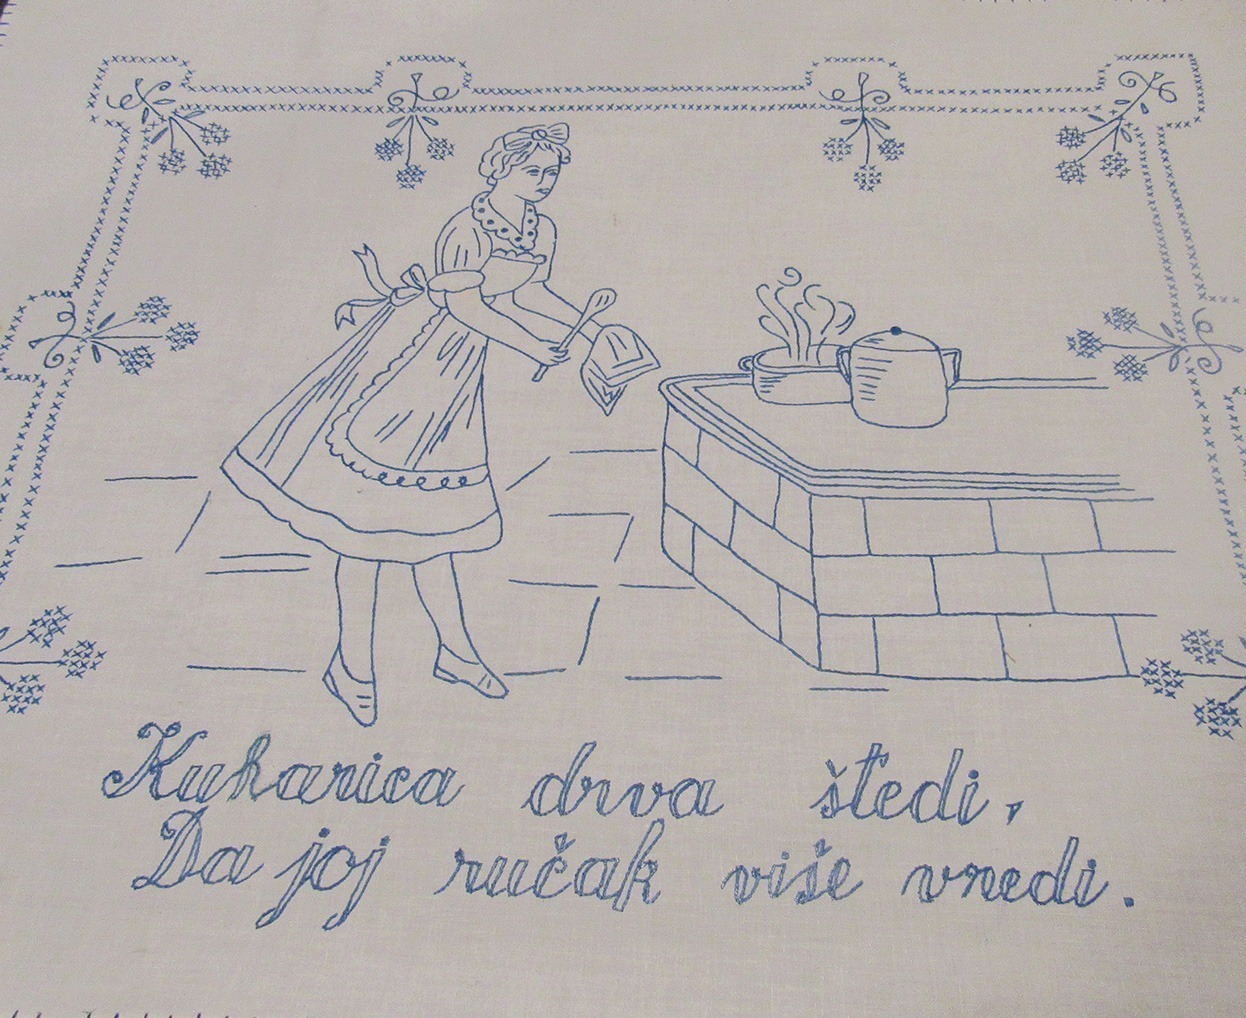 Kuharica drva štedi,
Da joj ručak više vnedi.